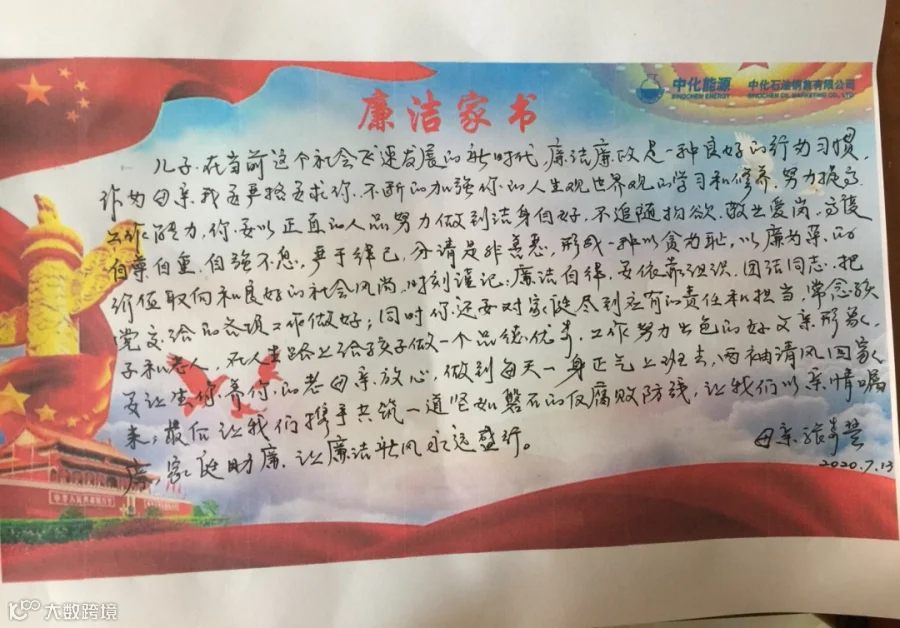 中化能源
SINOCHEM ENERGY
中化石油销售有限公司
SINOCHEM OIL MARKETING CO., LTD
廉洁家书
儿子,在当前这个社会飞速发展的新时代,廉洁廉政是一种良好的行为习惯,
作为母亲我要严格要求你,不断的加强你的人生观世界观的学习和修养,努力提高
工作能力,你要以正直的人品努力做到洁身自好,不追随物欲,敬业爱岗,
自尊自重,自强不息,严于律己,分清是非善恶,形成一种以贪为耻,以廉为荣的
价值取向和良好的社会风尚,时刻谨记,廉洁自律,要依靠组织,团结同志,把
党交给的各项工作做好;同时你还要对家庭尽到应有的责任和担当,常念孩
子和老人,在人生路上给孩子做一个品德优秀,工作努力出色的好父亲形象,
要让生你养你的老母亲放心,做到每天一身正气上班去,两袖清风回家
来;最后让我们携手共筑一道坚如磐石的反腐败防线,让我们以亲情嘱
廉,家庭助廉,让廉洁新风永远盛行。
母亲
2020.7.13
中华人民共和国万岁
大数跨境